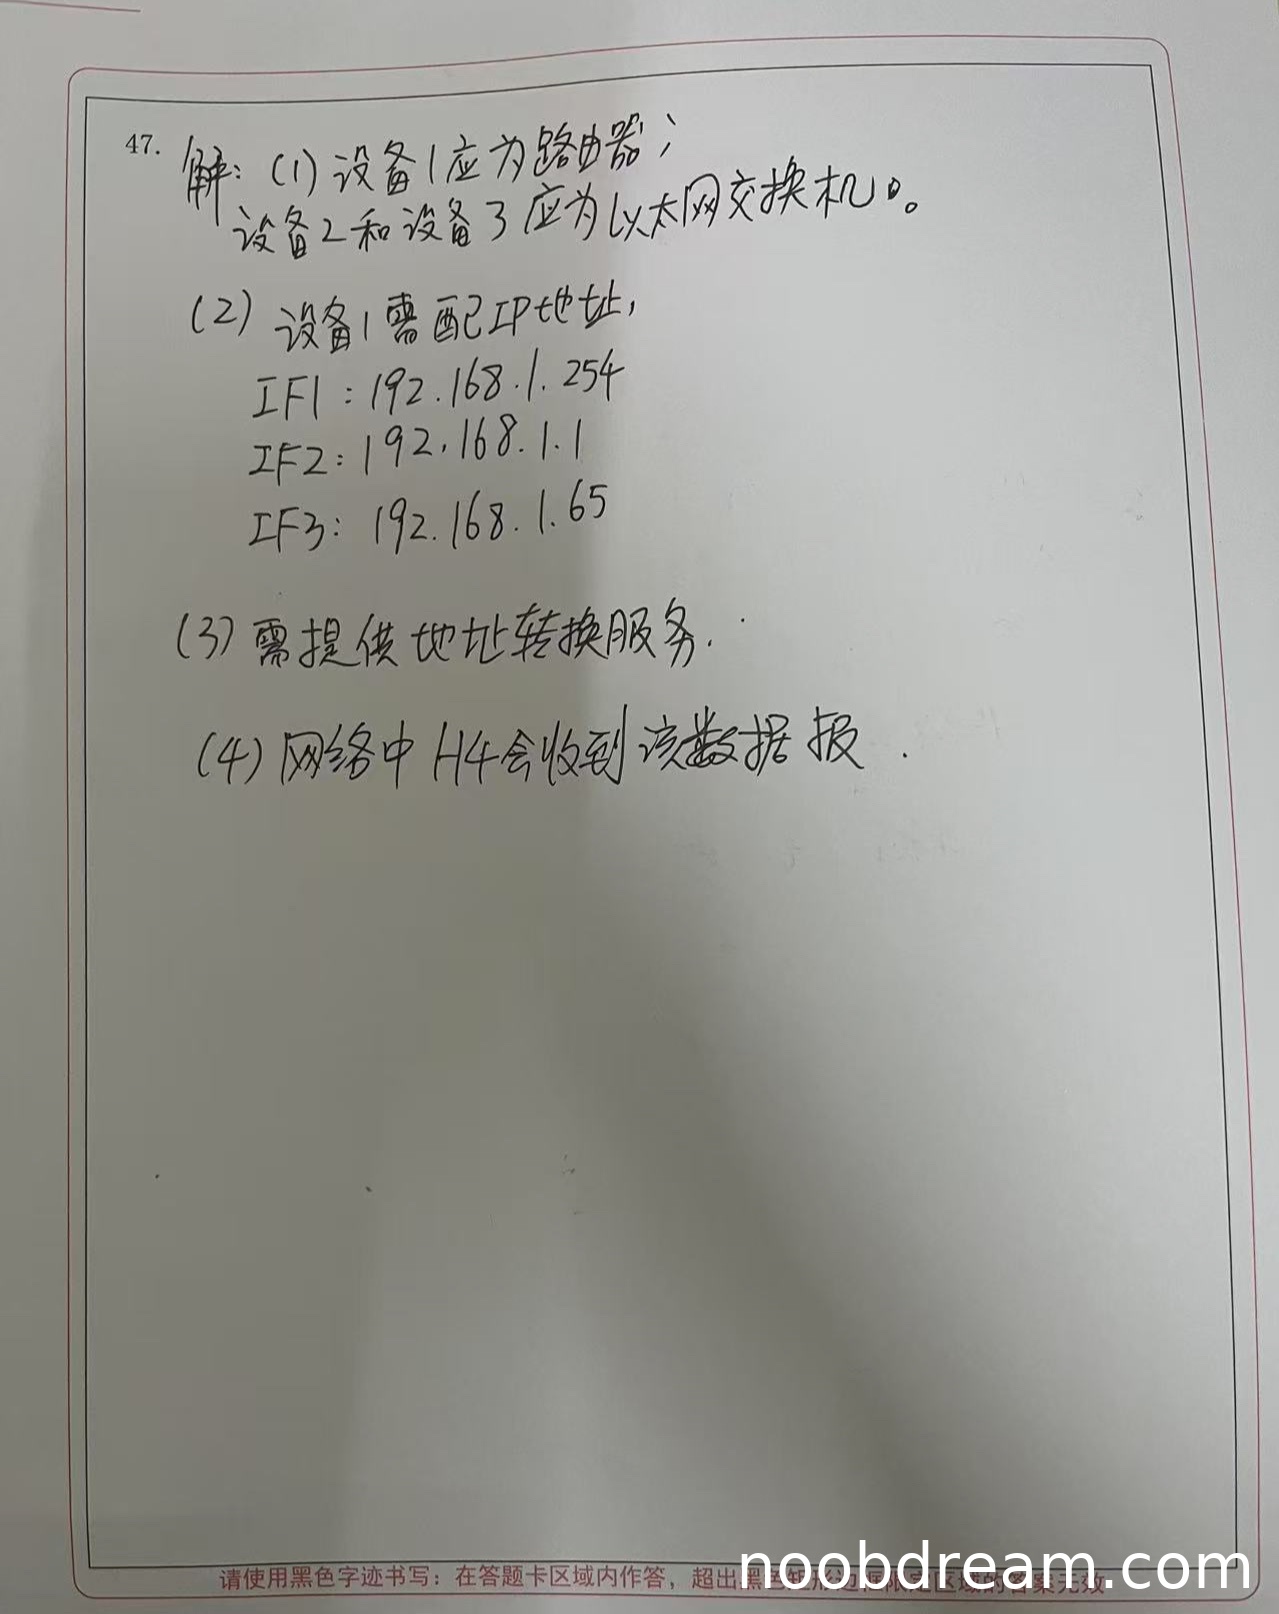 47.
解：(1) 设备1应为路由器；
设备2和设备3应为以太网交换机。
(2) 设备1需配IP地址，
IF1：192.168.1.254
IF2：192.168.1.1
IF3：192.168.1.65
(3) 需提供地址转换服务.
(4) 网络中H4会收到该数据报.
请使用黑色字迹书写：在答题卡区域内作答，超出黑色矩形边框限定区域的答案无效
noobdream.com